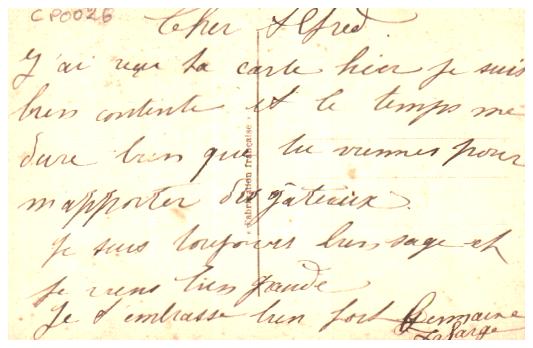 CP0026
Cher Alfred.
J'ai reçu ta carte hier je suis
bien contente et le temps me
dure bien que tu viennes pour
m'apporter des gâteaux.
Je suis toujours bien sage et
je viens bien grande
Je t'embrasse bien fort Germaine
Lafarge
« Fabrication française »